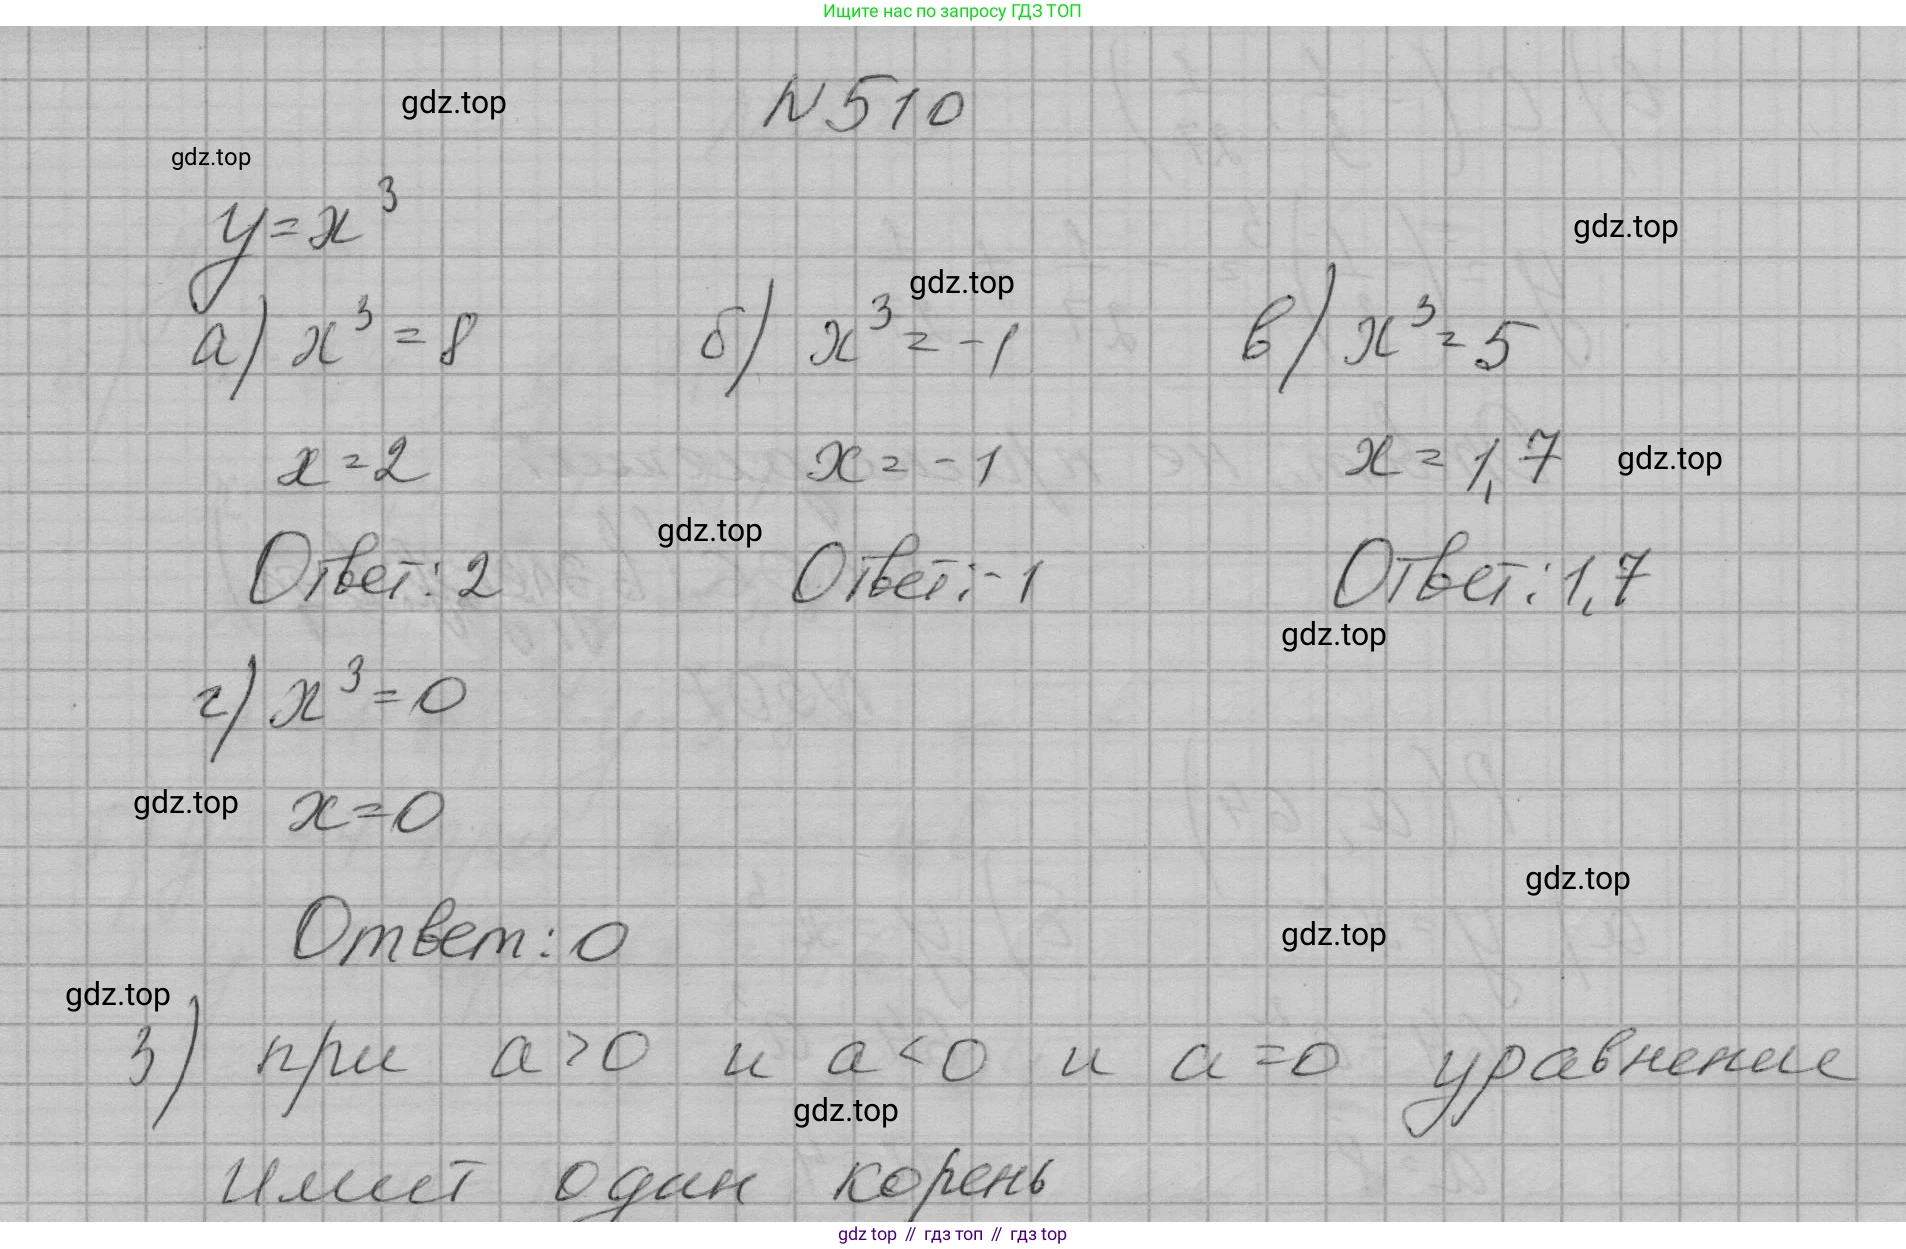 Ищите нас по запросу ГДЗ ТОП
gdz.top
N 510
gdz.top
y=x³
gdz.top
gdz.top
а) x³=8
б) x³=-1
в) x³=5
x=2
x=-1
x=1,7
gdz.top
gdz.top
Ответ: 2
Ответ: -1
Ответ: 1,7
gdz.top
г) x³=0
gdz.top
x=0
gdz.top
gdz.top
Ответ: 0
gdz.top
3) при a>0 и a<0 и a=0 уравнение
gdz.top
имеет один корень
gdz top // гдз топ // гдз top